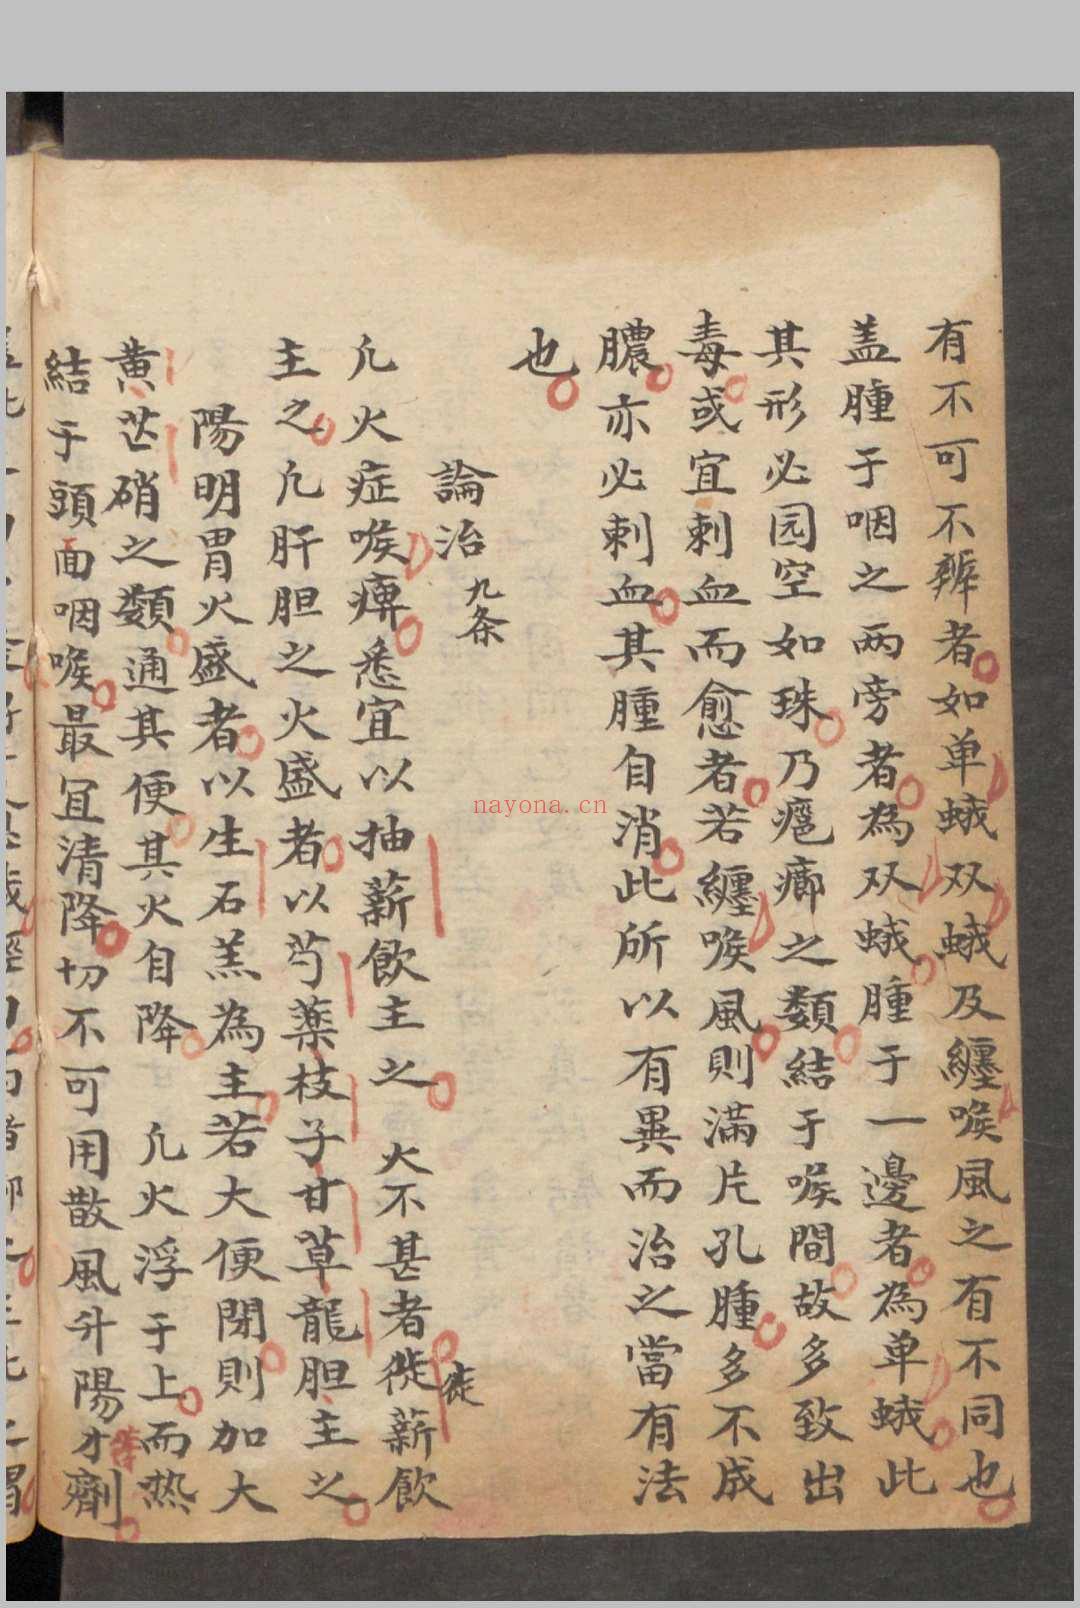 有不可不辨者如单蛾双蛾及纏喉風之有不同也
盖腫于咽之两旁者為双蛾腫于一邊者為单蛾此
其形必园空如珠乃癰癤之類結于喉間故多致出
毒或宜刺血而愈者若纏喉風則滿片孔腫多不成
膿亦必刺血其腫自消此所以有異而治之當有法
也
論治 九条
凢火症喉痹悉宜以抽薪飲主之 火不甚者徙薪飲
徙
主之凢肝胆之火盛者以芍薬枝子甘草龍胆主之
陽明胃火盛者以生石羔為主若大便閉則加大
黄芒硝之類通其便其火自降 凢火浮于上而热
結于頭面咽喉最宜清降切不可用散風升陽才劑
等
nayona.cn